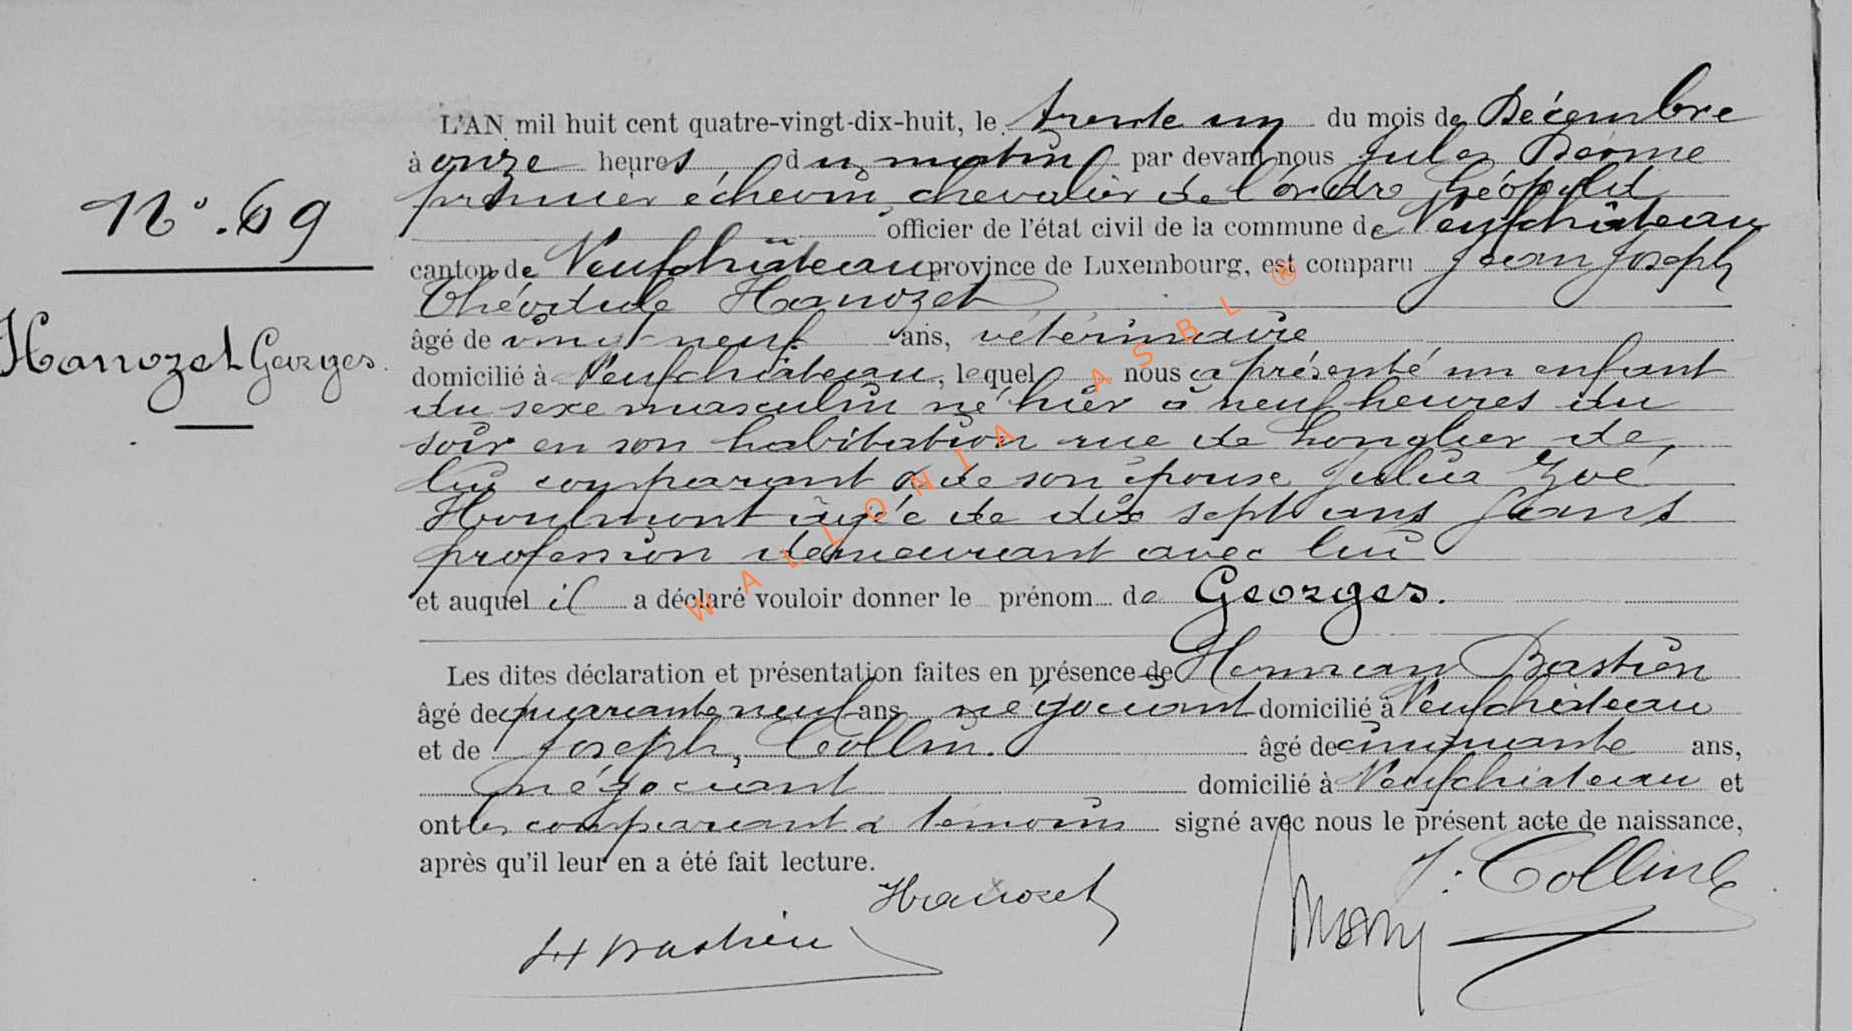 N°. 69
Hanozet Georges.
L'AN mil huit cent quatre-vingt-dix-huit, le trente un du mois de Décembre
à onze heures du matin par devant nous Jules
premier échevin, chevalier de l'ordre Léopold
officier de l'état civil de la commune de Neufchâteau
canton de Neufchâteau province de Luxembourg, est comparu Jean Joseph
Théodule Hanozet
âgé de vingt-neuf ans, vétérinaire
domicilié à Neufchâteau, lequel nous a présenté un enfant
du sexe masculin né hier à neuf heures du
soir en son habitation rue de Longlier de
lui comparant & de son épouse Julia Zoé
Houlmont âgée de dix sept ans sans
profession demeurant avec lui
et auquel il a déclaré vouloir donner le prénom de Georges.
Les dites déclaration et présentation faites en présence de Herman Bastien
âgé de quarante neuf ans négociant domicilié à Neufchâteau
et de Joseph, Collin. âgé de cinquante ans,
négociant domicilié à Neufchateau et
ont les comparant & témoins signé avec nous le présent acte de naissance,
après qu'il leur en a été fait lecture.
J: Collin
Hanozet
H Bastien
WALLONIA ASBL ®